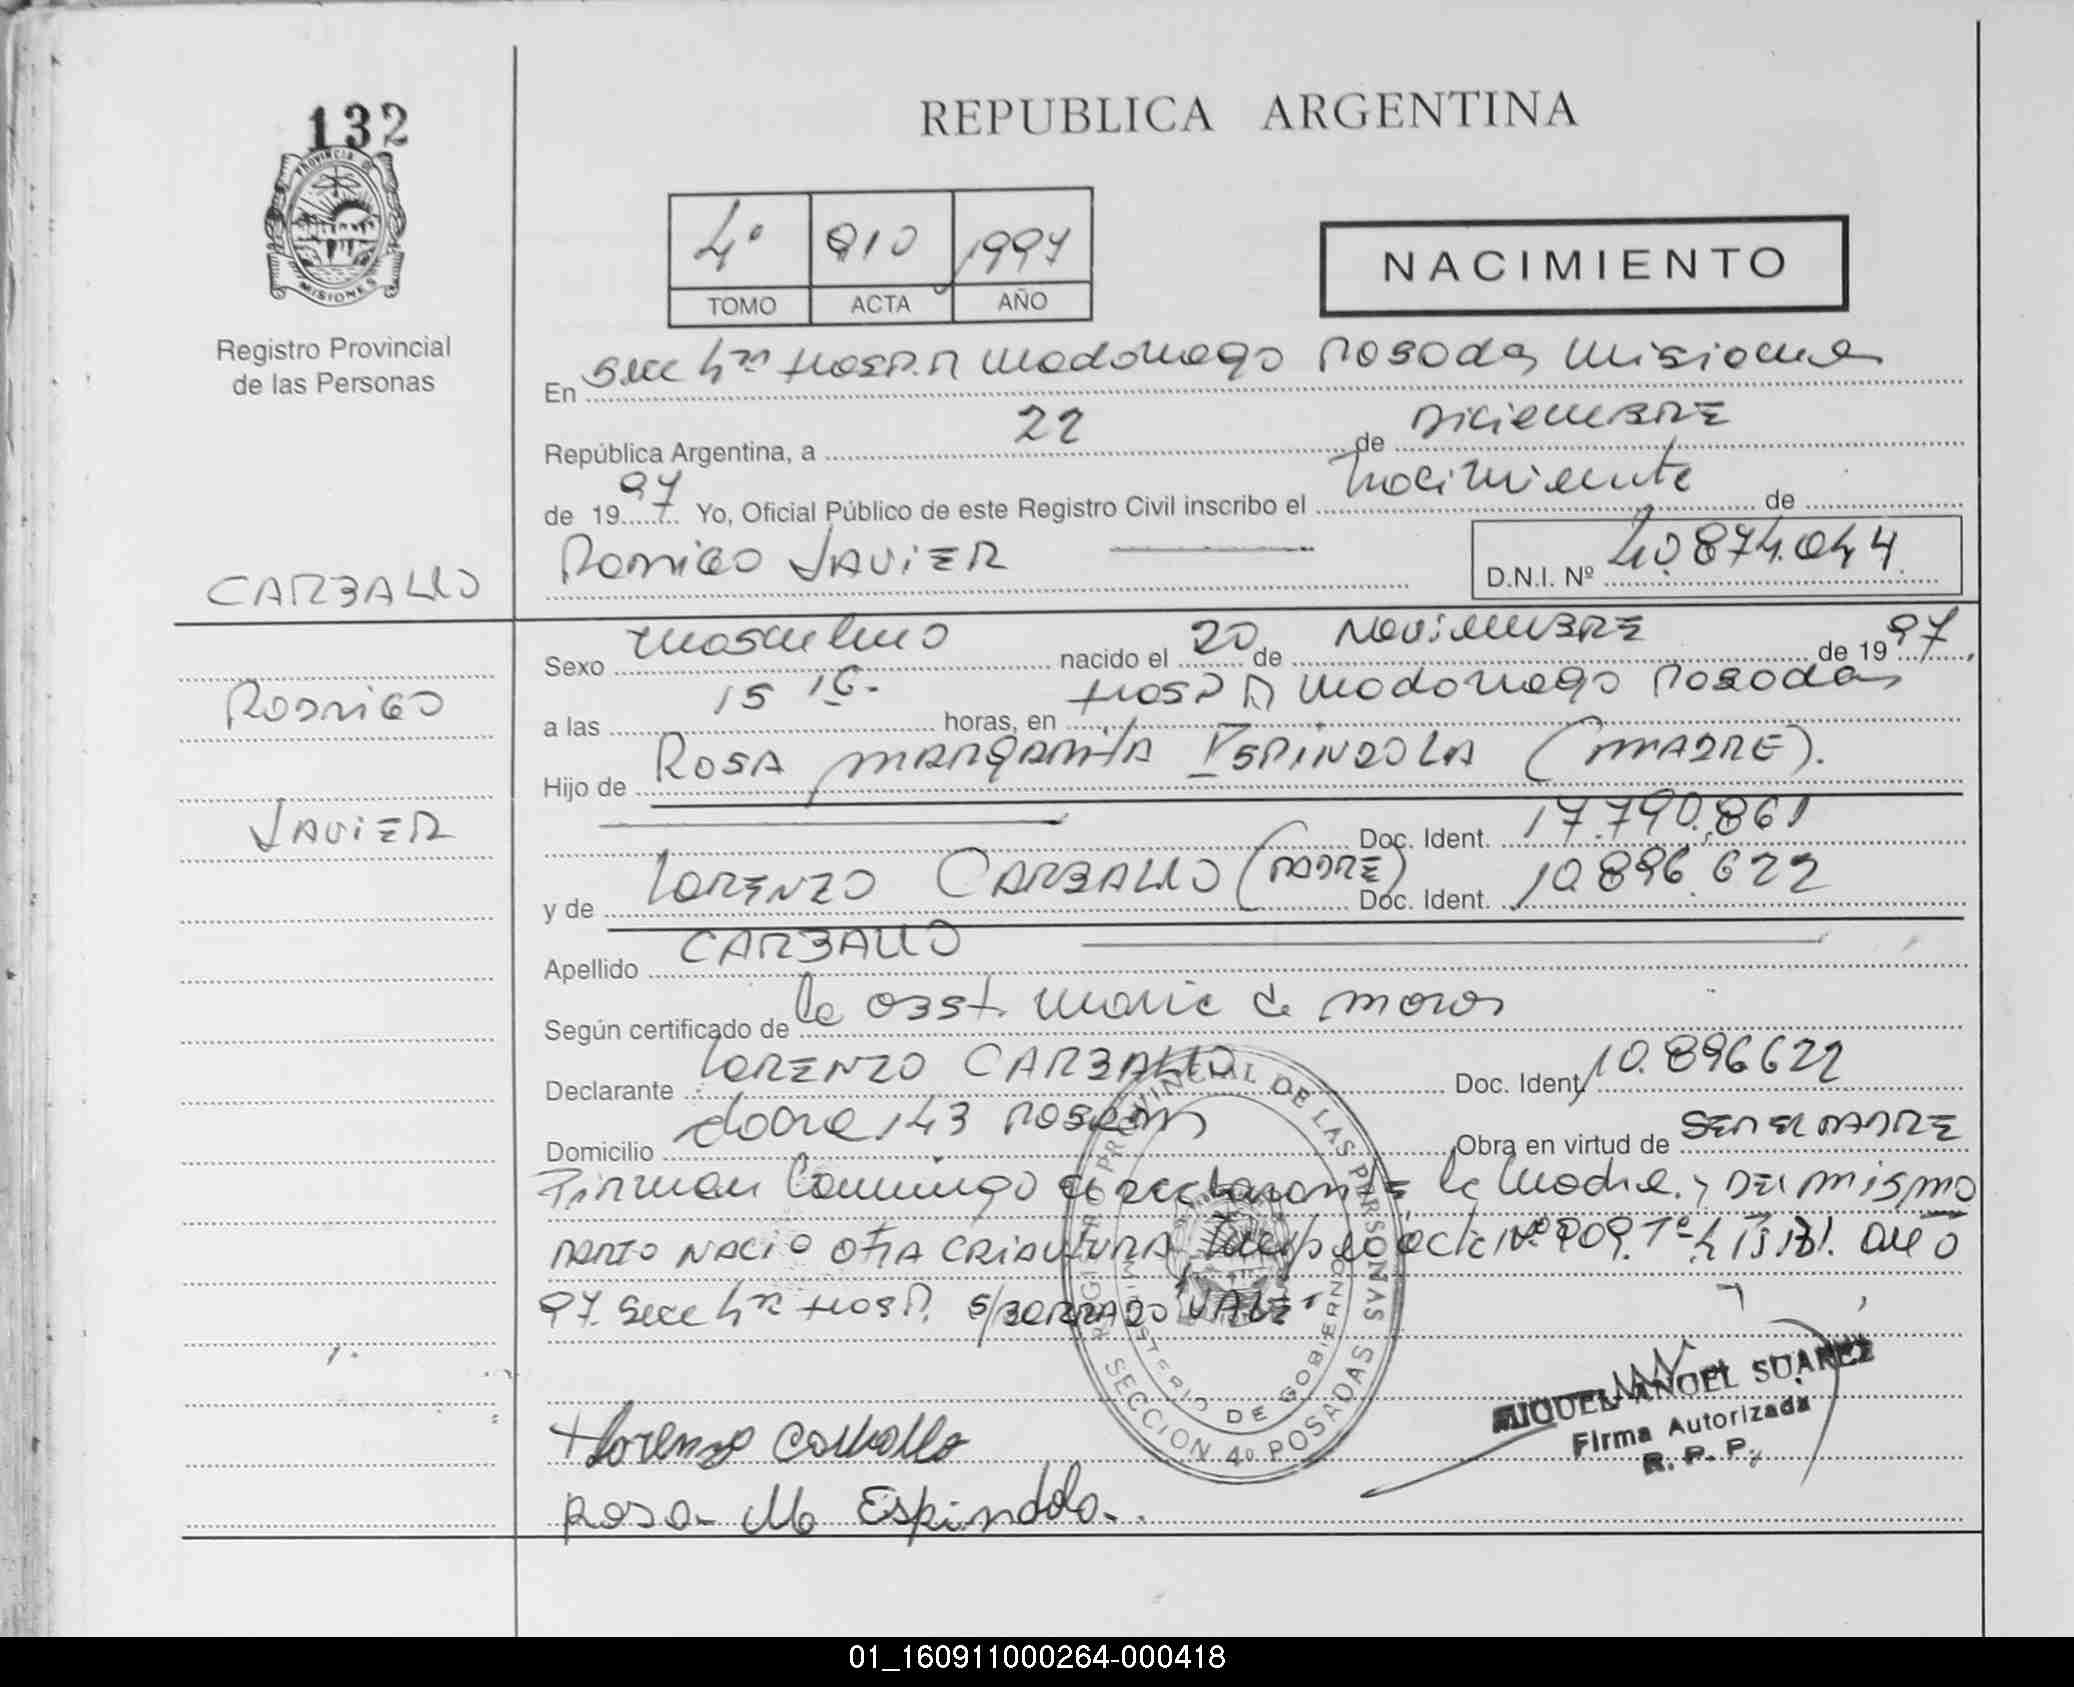 132
PROVINCIA DE
MISIONES
Registro Provincial
de las Personas
REPUBLICA ARGENTINA
4º 910 1997
TOMO ACTA AÑO
NACIMIENTO
En Secc 4ta Hosp. R Madariaga Posadas Misiones
República Argentina, a 22 de Diciembre
de 1997 Yo, Oficial Público de este Registro Civil inscribo el Nacimiento de
RODRIGO JAVIER
D.N.I. Nº 40.874.044
CARBALLO
RODRIGO
JAVIER
Sexo masculino nacido el 20 de Noviembre de 1997.
a las 15 16. horas, en Hosp R Madariaga Posadas
Hijo de ROSA MARGARITA ESPINDOLA (MADRE).
Doc. Ident. 17.790.861
y de LORENZO CARBALLO (PADRE) Doc. Ident. 10.896.622
Apellido CARBALLO
Según certificado de la Obst. Maria de
Declarante LORENZO CARBALLO Doc. Ident. 10.896622
Domicilio 143 Posadas Obra en virtud de SER EL PADRE
Firman Conmigo el declarante la Madre. y DEL MISMO
PARTO NACIO OTRA CRIATURA, acta Nº 909. Tº 4 Año
97. Secc 4ta Hosp. S/BORRADO "VALE"
REGISTRO PROVINCIAL DE LAS PERSONAS
MINISTERIO DE GOBIERNO
SECCION 4º POSADAS
MIGUEL ANGEL SUAREZ
Firma Autorizada
R. P. P.
Lorenzo Carballo
Rosa Ma Espindola.
01_160911000264-000418